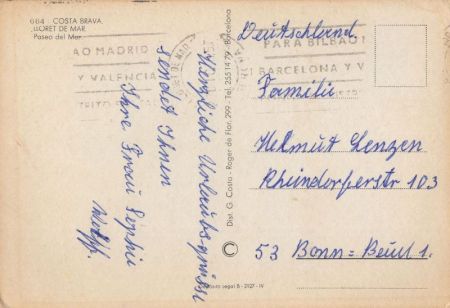 664 COSTA BRAVA
LLORET DE MAR
Paseo del Mar
AO MADRID
Y VALENCIA
PARA BILBAO
BARCELONA Y V
Herzliche Urlaubsgrüsse
sendet Ihnen
Ihre Frau Sophie
Dist. G. Costa - Roger de Flor, 299 - Tel. 255 14 79 - Barcelona
Deutschland
Familie
Helmut Lenzen
Rheindorferstr 103
53 Bonn=Beuel 1.
Legal B - 2127 - IV